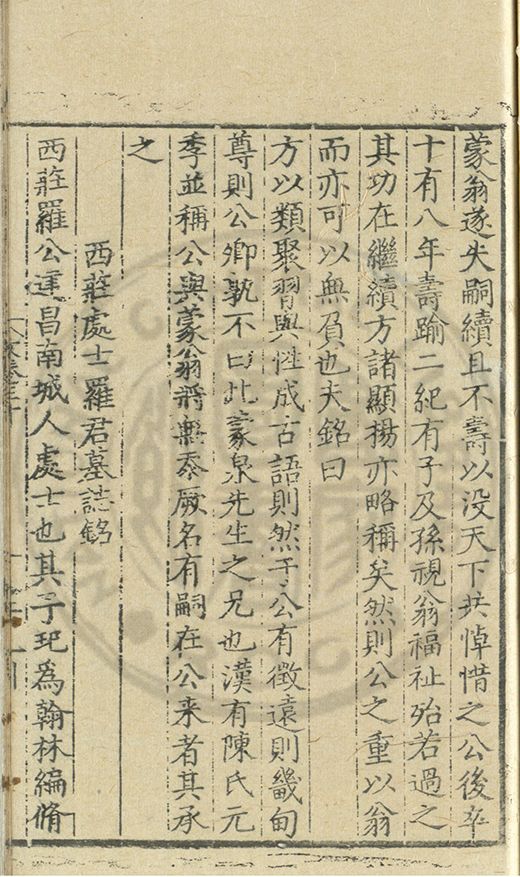 蒙翁遂失嗣續且不壽以没天下共悼惜之公後卒
十有八年壽踰二紀有子及孫視翁福祉殆若過之
其功在繼續方諸顯揚亦略稱矣然則公之重以翁
而亦可以無負也夫銘曰
方以類聚習與性成古語則然于公有徵遠則畿甸
尊則公卿孰不曰此蒙泉先生之兄也漢有陳氏元
季並稱公與蒙翁將無忝厥名有嗣在公来者其承
之
西莊處士羅君墓誌銘
西莊羅公建昌南城人處士也其子玘爲翰林編脩